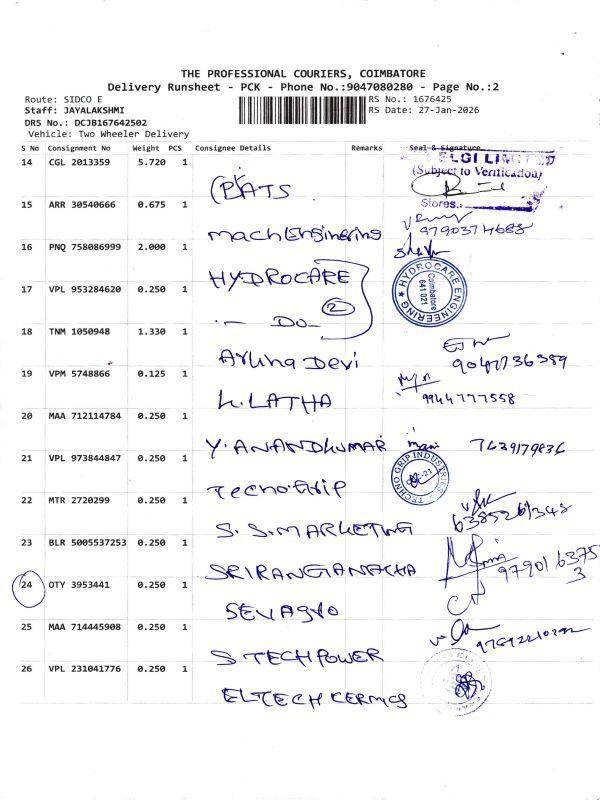 THE PROFESSIONAL COURIERS, COIMBATORE
Delivery Runsheet - PCK - Phone No.:9047080280 - Page No.:2
Route: SIDCO E
RS No.: 1676425
Staff: JAYALAKSHMI
RS Date: 27-Jan-2026
DRS No.: DCJB167642502
Vehicle: Two Wheeler Delivery
S No Consignment No Weight PCS Consignee Details Remarks Seal & Signature
14 CGL 2013359 5.720 1
ELGI LIMITED
(Subject to Verification)
Stores.
15 ARR 30540666 0.675 1 Mach Enginering
16 PNQ 758086999 2.000 1 HYDROCARE
HYDROCARE ENGINEERING
Coimbatore
641 021
17 VPL 953284620 0.250 1 - DO - 2
18 TNM 1050948 1.330 1 Aruna Devi
19 VPM 5748866 0.125 1 K. LATHA 9944777558
20 MAA 712114784 0.250 1 Y. ANANDKUMAR mani 7639179836
21 VPL 973844847 0.250 1 Tecno Grip
TECHNO GRIP INDUSTRIES
22 MTR 2720299 0.250 1 S. S. MARKETING
23 BLR 5005537253 0.250 1 SRIRANGANATHA
24 OTY 3953441 0.250 1 SEVAGRO
25 MAA 714445908 0.250 1 S TECH POWER
26 VPL 231041776 0.250 1 ELTECH CERMCS